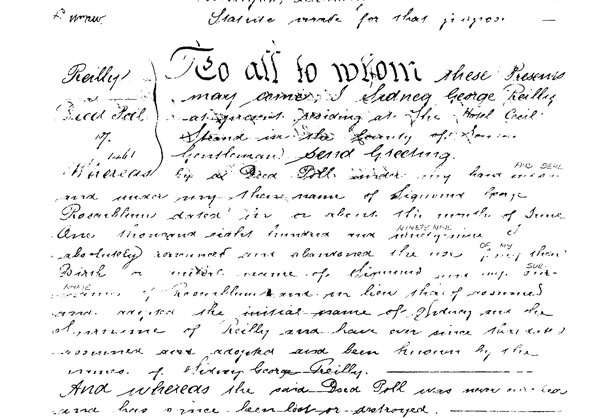 Statute made for that purpose
Reilly
Deed Poll
To all to whom these Presents
may come, I Sidney George Reilly
at present residing at the Hotel Cecil
Strand in the County of London
Gentleman Send Greeting.
AND SEAL
Whereas by a Deed Poll under my hand
and under my then name of Sigmund George
Rosenblum dated in or about the month of June
NINETY NINE I
One thousand eight hundred and ninety-nine I
OF MY
absolutely renounced and abandoned the use my then
SUR
Birth or initial name of Sigmund and my sur-
NAME
name of Rosenblum and in lieu thereof assumed
and adopted the initial name of Sidney and the
surname of Reilly and have ever since
assumed and adopted and been known by the
names of Sidney George Reilly.
And whereas the said Deed Poll was never
and has since been lost or destroyed.